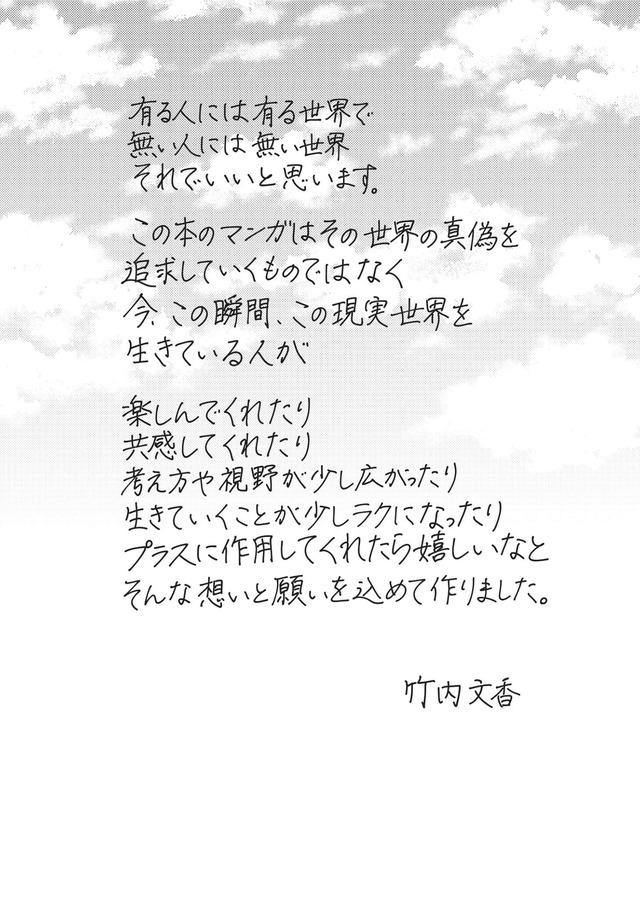 有る人には有る世界で
無い人には無い世界
それでいいと思います。
この本のマンガはその世界の真偽を
追求していくものではなく
今、この瞬間、この現実世界を
生きている人が
楽しんでくれたり
共感してくれたり
考え方や視野が少し広がったり
生きていくことが少しラクになったり
プラスに作用してくれたら嬉しいなと
そんな想いと願いを込めて作りました。
竹内文香